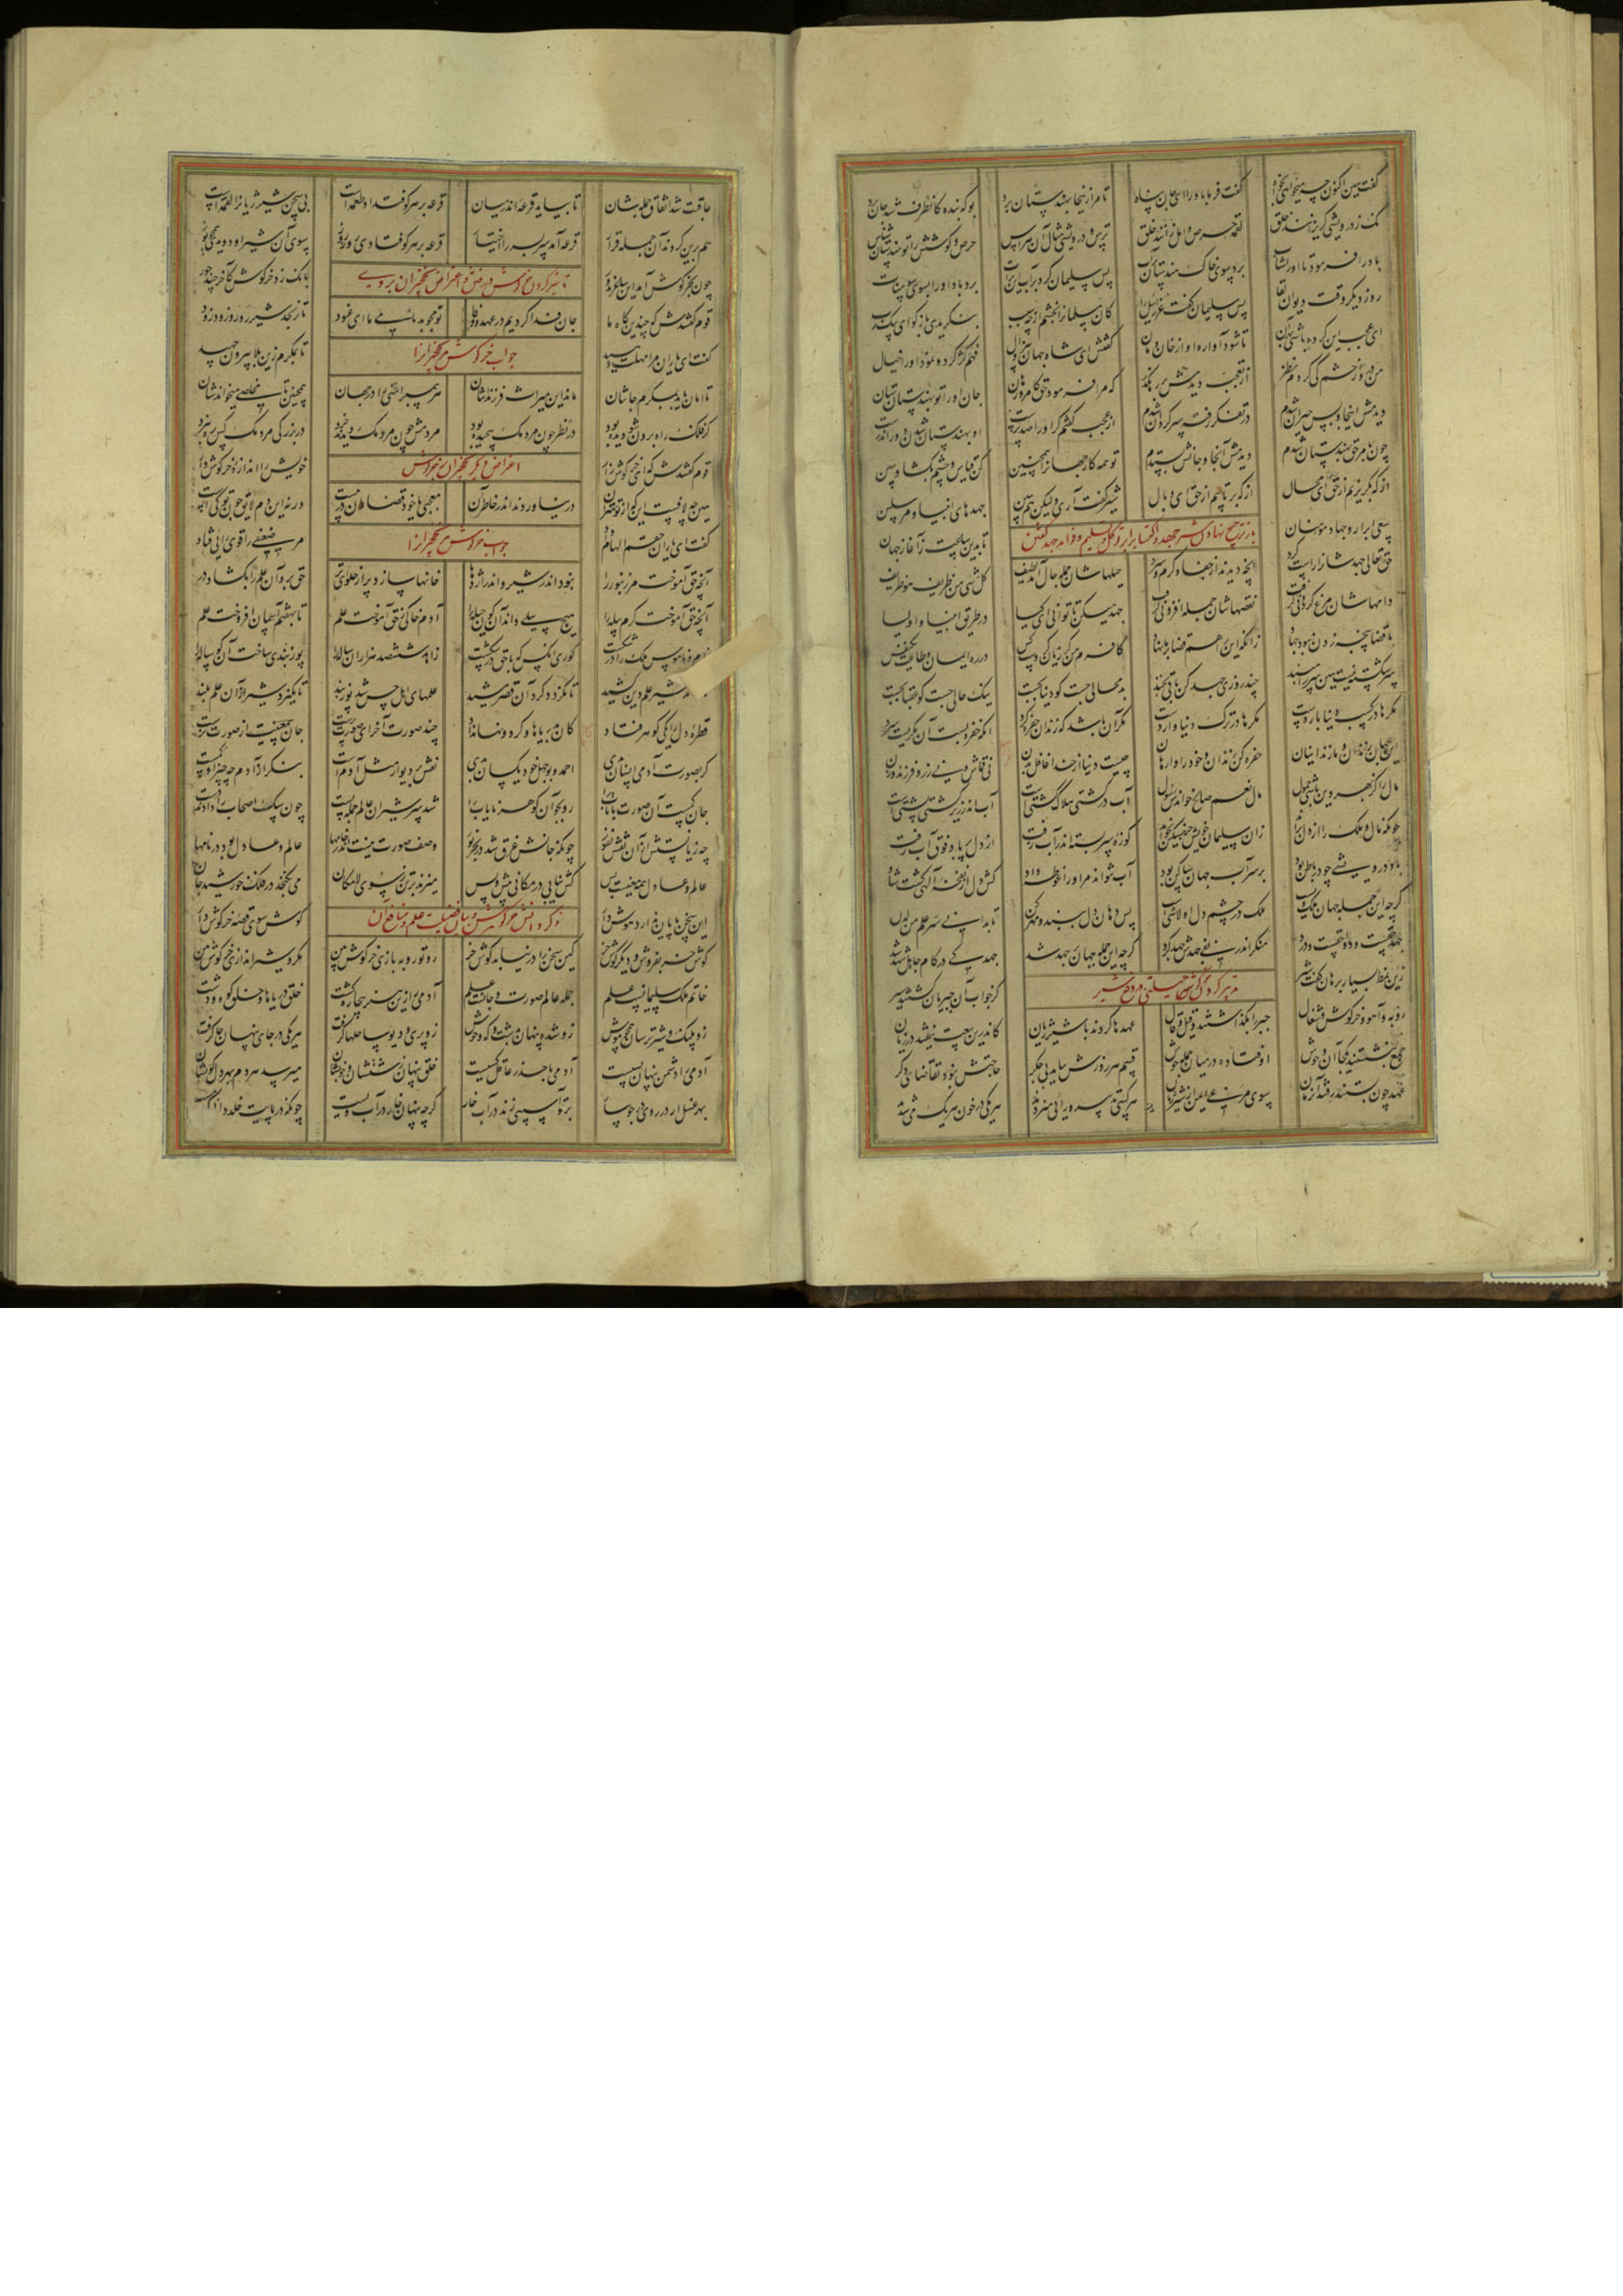 گفت هین اکنون چه میخواهی بخواه گفت فرما باد را ای جان پناه تا مرا زینجا بهندستان برد بو که بنده کانطرف شد جان برد
نک ز درویشی گریزانند خلق لقمه حرص و امل زانند خلق ترس درویشی مثال آن هراس حرص و کوشش را تو هندستان شناس
باد را فرمود تا او را شتاب برد سوی خاک هندستان بر آب پس سلیمان کرد بر آب این برات برد باد او را بسوی سومنات
روز دیگر وقت دیوان و لقا پس سلیمان گفت عزرائیل را کان مسلمانرا بخشم از چه سبب بنگریدی باز گو ای پیک رب
ای عجب این کرده باشی بهر آن تا شود آواره او از خان و مان گفتش ای شاه جهان بی زوال فهم کژ کرد و نمود او را خیال
من درو از خشم کی کردم نظر از تعجب دیدمش در رهگذر که مرا فرمود حق کامروز هان جان او را تو بهندستان ستان
دیدمش اینجا و بس حیران شدم در تفکر رفته سرگردان شدم از عجب گفتم گر او را صد پرست او بهندستان شدن دور اندرست
چون بامر حق بهندستان شدم دیدمش آنجا و جانش بستدم تو همه کار جهانرا همچنین کن قیاس و چشم بگشا و ببین
از که بگریزیم از حق ای محال از که برتابیم از حق ای وبال شیر گفت آری ولیکن هم ببین جهدهای انبیا و مرسلین
باز ترجیح نهادن شیر جهد و اکتساب را بر توکل و تسلیم و فواید جهد گفتن
سعی ابرار و جهاد مؤمنان تا بدین ساعت ز آغاز جهان
حق تعالی جهدشانرا راست کرد آنچه دیدند از جفا و گرم و سرد حیلهاشان جمله حال آمد لطیف کل شیء من ظریف هو ظریف
دامهاشان مرغ گردونی گرفت نقصهاشان جمله افزونی گرفت جهد میکن تا توانی ای کیا در طریق انبیا و اولیا
با قضا پنجه زدن نبود جهاد زانکه این را هم قضا بر ما نهاد کافرم من گر زیان کردست کس در ره ایمان و طاعت یک نفس
سر شکسته نیست هین سر را مبند چند روزی جهد کن باقی بخند بد محالی جست کو دنیا بجست نیک حالی جست کو عقبی بجست
مکرها در کسب دنیا باردست مکرها در ترک دنیا واردست مکر آن باشد که زندان حفره کرد آنکه حفره بست آن مکریست سرد
این جهان زندان و ما زندانیان حفره کن زندان و خود را وارهان چیست دنیا از خدا غافل بدن نی قماش و نی زر و فرزند و زن
مال را کز بهر دین باشی حمول نعم مال صالح خواندش رسول آب در کشتی هلاک کشتی است آب اندر زیر کشتی پشتی است
چونکه مال و ملک را از دل براند زان سلیمان خویش جز مسکین نخواند کوزه سر بسته اندر آب زفت از دل پر باد فوق آب رفت
باد درویشی چو در باطن بود بر سر آب جهان ساکن بود آب نتواند مر او را غوطه داد
گرچه این جمله جهان ملک ویست ملک در چشم دل او لاشی است پس دهان دل ببند و مهر کن
جهد حقست و دوا حقست و درد منکر اندر نفی جهدش جهد کرد گرچه این جمله جهان بر جهد شد جهد کی در کام جاهل شهد شد
زین نمط بسیار برهان گفت شیر کز جواب آن جبریان گشتند سیر
روبه و آهو و خرگوش و شغال جبر را بگذاشتند و قیل و قال عهدها کردند با شیر ژیان کاندرین بیعت نیفتد در زیان
جمع بنشستند یکجا آن وحوش اوفتاده در میان جمله جوش قسم هر روزش بیاید بی جگر حاجتش نبود تقاضای دگر
عهد چون بستند و رفتند آن زمان سوی مرعی ایمن از شیر ژیان هر کسی تدبیر و رایی میزدند هر یکی در خون هر یک میشدند
عاقبت شد اتفاق جمله شان تا بیاید قرعه اندر میان قرعه بر هر کو فتد او طعمه است بی سخن شیر ژیانرا لقمه است
هم برین کردند آن جمله قرار قرعه آمد سر بسر را اختیار قرعه بر هر کو فتادی روز روز سوی آن شیر او دویدی همچو یوز
چون بخرگوش آمد این ساغر بدور بانگ زد خرگوش کاخر چند جور
قوم گفتندش که چندین گاه ما جان فدا کردیم در عهد و وفا تو مجو بدنامی ما ای عنود تا نرنجد شیر رو رو زود زود
جواب خرگوش نخجیرانرا
گفت ای یاران مرا مهلت دهید تا بمکرم زین بلا بیرون جهید
تا امان یابد بمکرم جانتان ماند این میراث فرزندانتان هر پیمبر امتی را در جهان همچنین تا مخلصی میخواندشان
کز فلک راه برون شو دیده بود در نظر چون مردمک پیچیده بود مردمش چون مردمک دیدند خرد در بزرگی مردمک کس ره نبرد
قوم گفتندش که ای خر گوش دار خویش را اندازه خرگوش دار
هین چه لافست این که از تو بهتران در نیاوردند اندر خاطر آن معجبی یا خود قضامان در پیست ورنه این دم لایق چون تو کیست
گفت ای یاران حقم الهام داد مر ضعیفی را قوی رایی فتاد
آنچه حق آموخت مر زنبور را نبود اندر شیر و اندر گور را خانها سازد پر از حلوای تر حق برو آن علم را بگشاد در
آنچه حق آموخت کرم پیله را هیچ پیلی داند آن گون حیله را آدم خاکی ز حق آموخت علم تا بهفتم آسمان افروخت علم
نام و ناموس ملک را در شکست کوری آنکس که با حق در شکست زاهد ششصد هزاران ساله را پوزبندی ساخت آن گوساله را
شیر علم دین کشید تا نگردد گرد آن قصر مشید علمهای اهل حس شد پوزبند تا نگیرد شیر از آن علم بلند
قطره دل را یکی گوهر فتاد کان بدریاها و گردونها نداد چند صورت آخر ای صورت پرست جان بی معنیت از صورت نرست
گر بصورت آدمی انسان بدی احمد و بوجهل خود یکسان بدی نقش بر دیوار مثل آدم است بنگر از آدم چه چیز او کمست
جان کمست آن صورت با تاب را رو بجو آن گوهر نایاب را شد سر شیران عالم جمله پست چون سگ اصحاب را دادند دست
چه زیانستش از آن نقش نفور چونکه جانش غرق شد در بحر نور وصف صورت نیست اندر خامها عالم و عادل بود در نامها
عالم و عادل همه معنیست بس کش نیابی در مکانی پیش و پس میزند بر تن ز سوی لامکان می نگنجد در فلک خورشید جان
ذکر دانش خرگوش و بیان فضیلت علم و منافع آن
این سخن پایان ندارد هوش دار گوش سوی قصه خرگوش دار
گوش خر بفروش و دیگر گوش خر کین سخن را در نیابد گوش خر رو تو روبه بازی خرگوش بین مکر و شیر اندازی خرگوش بین
خاتم ملک سلیمانست علم جمله عالم صورت و جانست علم آدمی را زین هنر بیچاره گشت خلق دریاها و خلق کوه و دشت
زو پلنگ و شیر ترسان همچو موش زو شده پنهان بدشت و که وحوش زو پری و دیو ساحلها گرفت هر یکی در جای پنهان جا گرفت
آدمی را دشمن پنهان بسیست آدمی با حذر عاقل کسیست خلق پنهان زشتشان و خوبشان میرسد هر دم بهر دل کوبشان
بهر غسل ار در روی در جویبار بر تو آسیبی زند در آب خار گرچه پنهان خار در آبست پست چونکه در پایت خلد